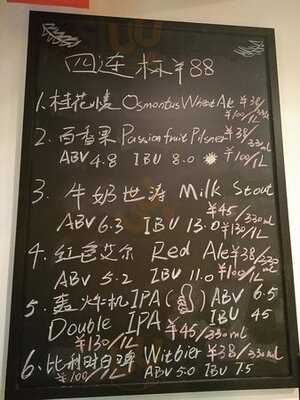 四连杯¥88
1. 桂花 Osmantus Wheat Ale ¥38/330ml
¥100/1L
2. 百香果 Passion fruit Pilsner ¥38/330ml
ABV 4.8 IBU 8.0 ¥100/1L
3. 牛奶世涛 Milk Stout
¥45/330ml
ABV 6.3 IBU 13.0 ¥130/1L
4. 红色艾尔 Red Ale ¥38/330ml
ABV 5.2 IBU 11.0 ¥100/1L
5. 轰炸机IPA ABV 6.5
Double IPA IBU 45
¥130/1L ¥45/330ml
6. 比利时白啤 Witbier ¥38/330ml
¥100/1L ABV 5.0 IBU 15